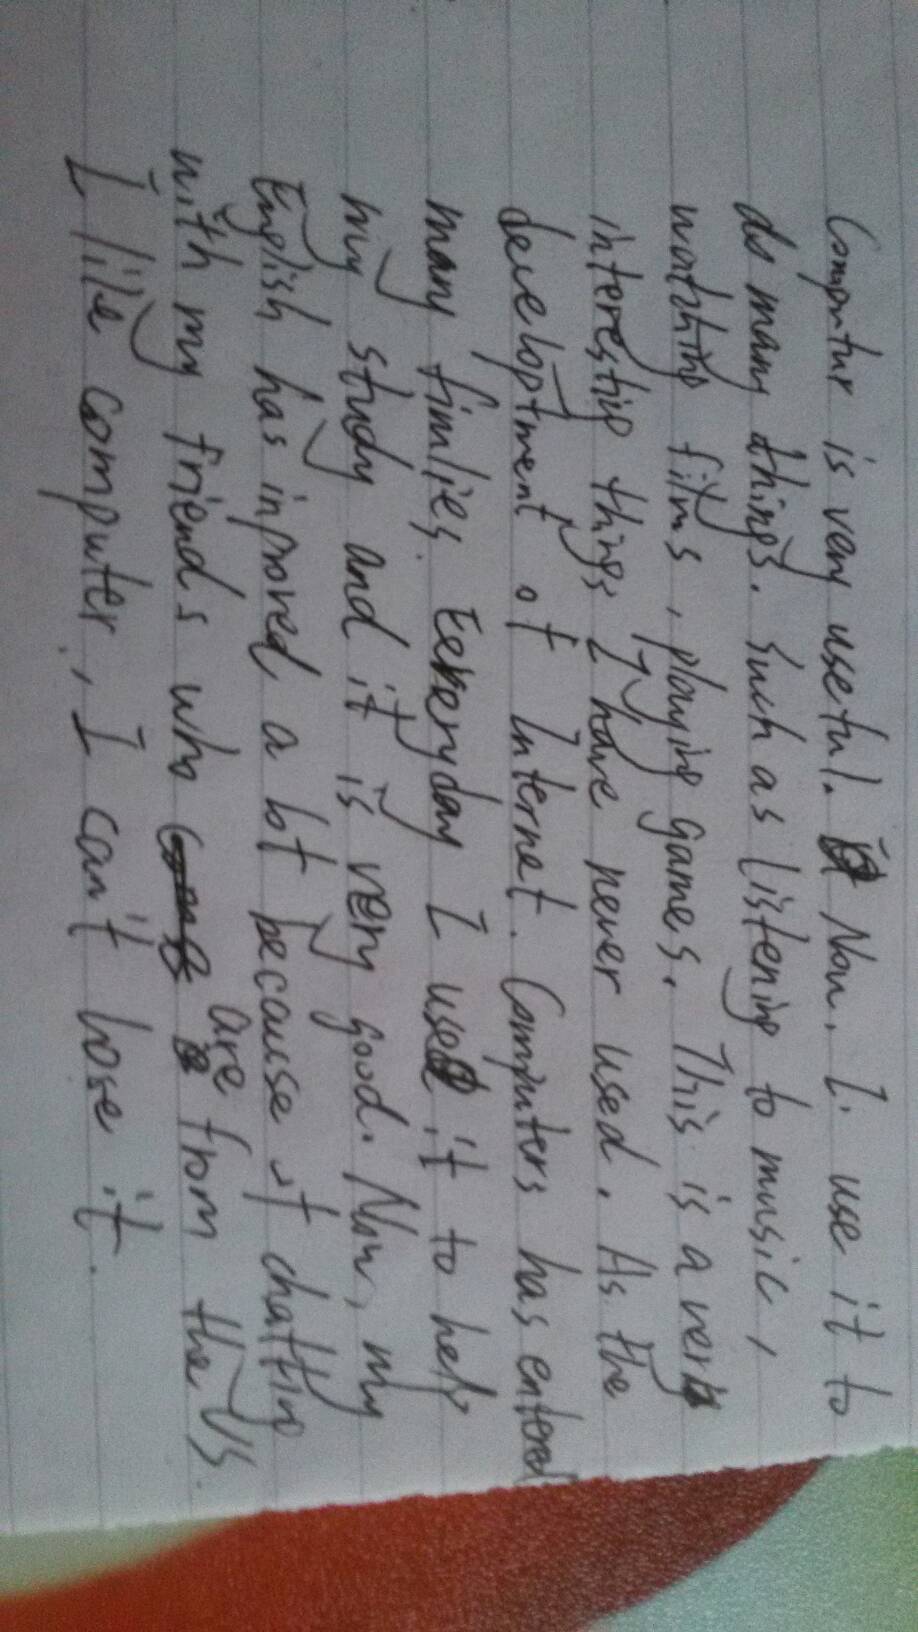 Computer is very useful. Now. I. use it to
do many things. Such as listening to music,
watching films, playing games. This is a very
interesting things I have never used. As the
developtment of Internet. Computers has entered
many fimlies. Eeveryday I use it to help
my study and it is very good. Now, my
English has inproved a lot because of chatting
with my friends who are from the US.
I like computer, I can't lose it.